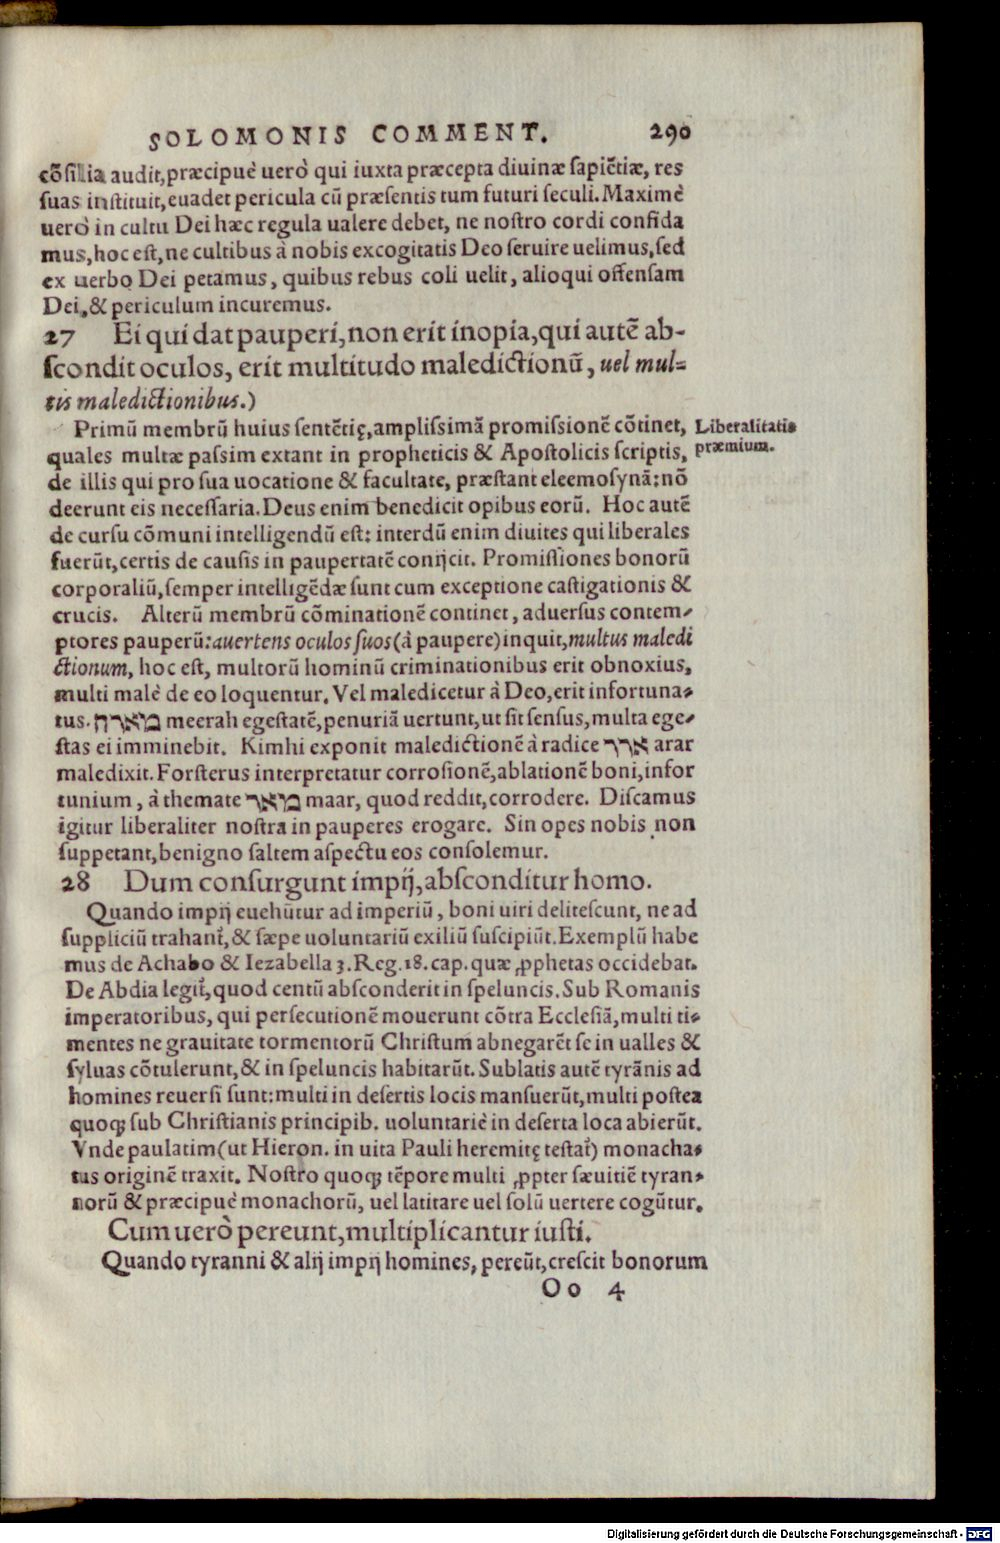 SOLOMONIS COMMENT. 290
cõsilia audit, præcipuè uerò qui iuxta præcepta diuinæ sapiẽtiæ, res
suas instituit, euadet pericula cũ præsentis tum futuri seculi. Maximè
uerò in cultu Dei hæc regula ualere debet, ne nostro cordi confida
mus, hoc est, ne cultibus à nobis excogitatis Deo seruire uelimus, sed
ex uerbo Dei petamus, quibus rebus coli uelit, alioqui offensam
Dei, & periculum incuremus.
27 Ei qui dat pauperi, non erit inopia, qui autẽ ab-
scondit oculos, erit multitudo maledictionũ, uel mul-
tis maledictionibus.)
Primũ membrũ huius sentẽtię, amplissimã promissionẽ cõtinet,
Liberalitatis
quales multæ passim extant in propheticis & Apostolicis scriptis,
præmium.
de illis qui pro sua uocatione & facultate, præstant eleemosynã: nõ
deerunt eis necessaria. Deus enim benedicit opibus eorũ. Hoc autẽ
de cursu cõmuni intelligendũ est: interdũ enim diuites qui liberales
fuerũt, certis de causis in paupertatẽ conijcit. Promissiones bonorũ
corporaliũ, semper intelligẽdæ sunt cum exceptione castigationis &
crucis. Alterũ membrũ cõminationẽ continet, aduersus contem-
ptores pauperũ: auertens oculos suos (à paupere) inquit, multus maledi
ctionum, hoc est, multorũ hominũ criminationibus erit obnoxius,
multi malè de eo loquentur. Vel maledicetur à Deo, erit infortuna-
tus. מארה meerah egestatẽ, penuriã uertunt, ut sit sensus, multa ege-
stas ei imminebit. Kimhi exponit maledictionẽ à radice ארר arar
maledixit. Forsterus interpretatur corrosionẽ, ablationẽ boni, infor
tunium, à themate מאר maar, quod reddit, corrodere. Discamus
igitur liberaliter nostra in pauperes erogare. Sin opes nobis non
suppetant, benigno saltem aspectu eos consolemur.
28 Dum consurgunt impij, absconditur homo.
Quando impij euehũtur ad imperiũ, boni uiri delitescunt, ne ad
suppliciũ trahant᷑, & sæpe uoluntariũ exiliũ suscipiũt. Exemplũ habe
mus de Achabo & Iezabella 3. Reg. 18. cap. quæ ꝓphetas occidebat.
De Abdia legit᷑, quod centũ absconderit in speluncis. Sub Romanis
imperatoribus, qui persecutionẽ mouerunt cõtra Ecclesiã, multi ti-
mentes ne grauitate tormentorũ Christum abnegarẽt se in ualles &
syluas cõtulerunt, & in speluncis habitarũt. Sublatis autẽ tyrãnis ad
homines reuersi sunt: multi in desertis locis mansuerũt, multi postea
quoqꝫ sub Christianis principib. uoluntariè in deserta loca abierũt.
Vnde paulatim (ut Hieron. in uita Pauli heremitę testat᷑) monacha-
tus originẽ traxit. Nostro quoqꝫ tẽpore multi ꝓpter sæuitiẽ tyran-
norũ & præcipuè monachorũ, uel latitare uel solũ uertere cogũtur.
Cum uerò pereunt, multiplicantur iusti.
Quando tyranni & alij impij homines, pereũt, crescit bonorum
Oo 4
Digitalisierung gefördert durch die Deutsche Forschungsgemeinschaft - DFG